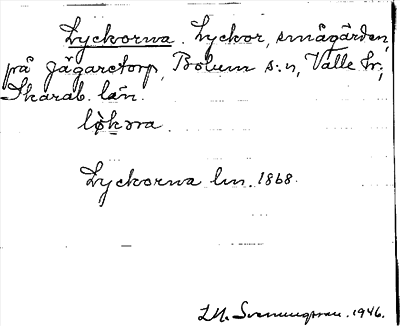 Lyckorna. Lyckor, smågården,
på Jägaretorp, Bolum s:n, Valle hr;
Skarab. län.
Lyckorna lm. 1868.
L.M. Svenungsson. 1946.